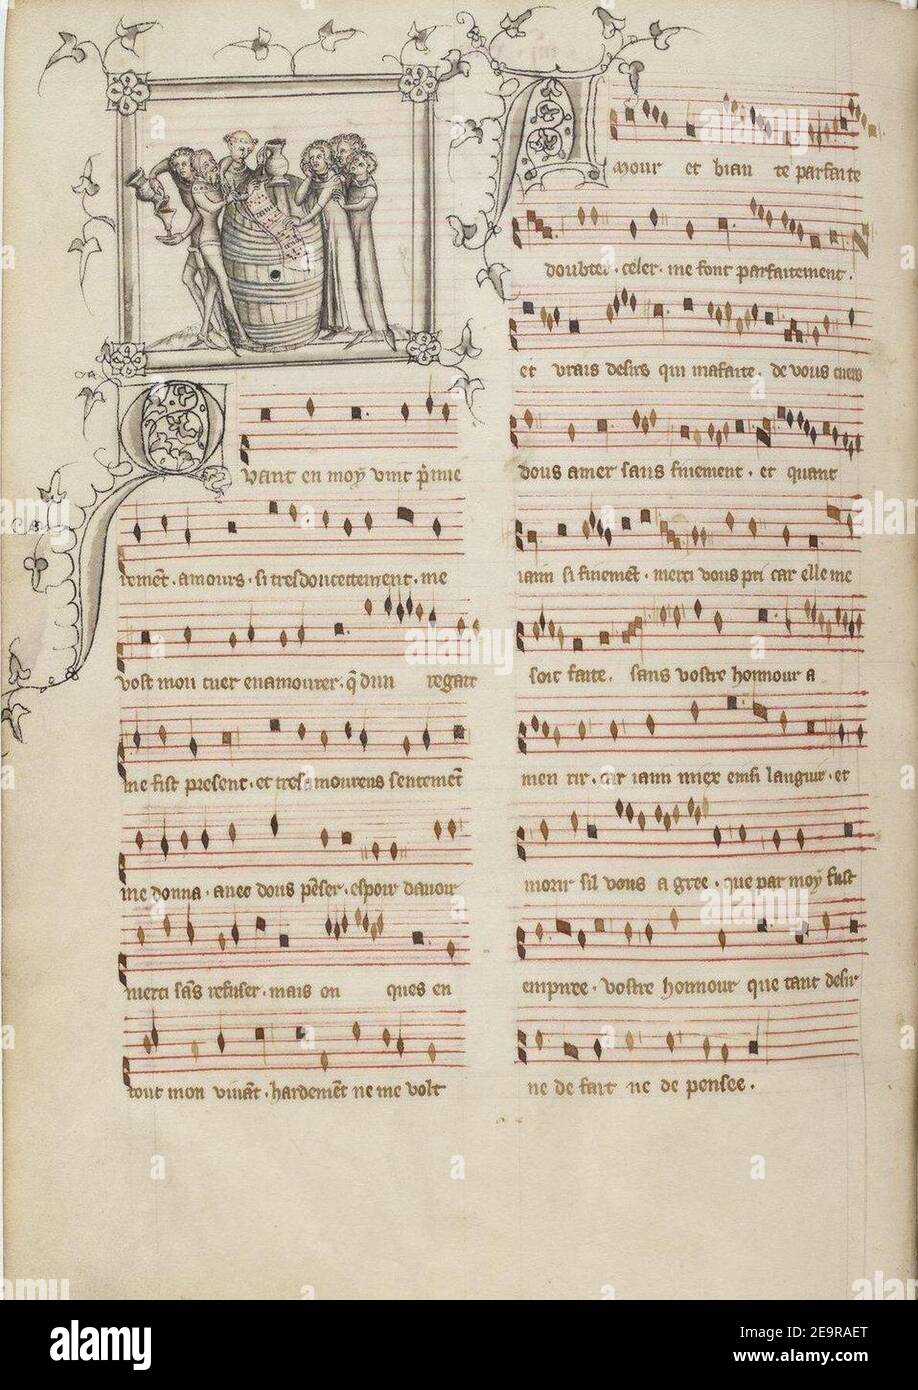 Quant en moy vint p̃mie
rement . amours . si tresdoucettement . me
vost mon cuer enamourer . q̃ dun regart
me fist present . et tres amoureus sentemẽt
me donna . avec dous pẽser . espoir davoir
merci sãs refuser . mais on ques en
tout mon vivãt . hardemẽt ne me volt
Amour et biau te parfaite
doubter . celer . me font parfaitement .
et vrais desirs qui mafaite . de vous cuers
dous amer sans finement . et quant
iaim si finemẽt . merci vous pri car elle me
soit faite . sans vostre honnour a
men rir . car iaim miex ensi languir . et
morir sil vous a gree . que par moy fust
empiree . vostre honnour que tant desir
ne de fait ne de pensee .
alamy
Image ID: 2E9RAET
www.alamy.com